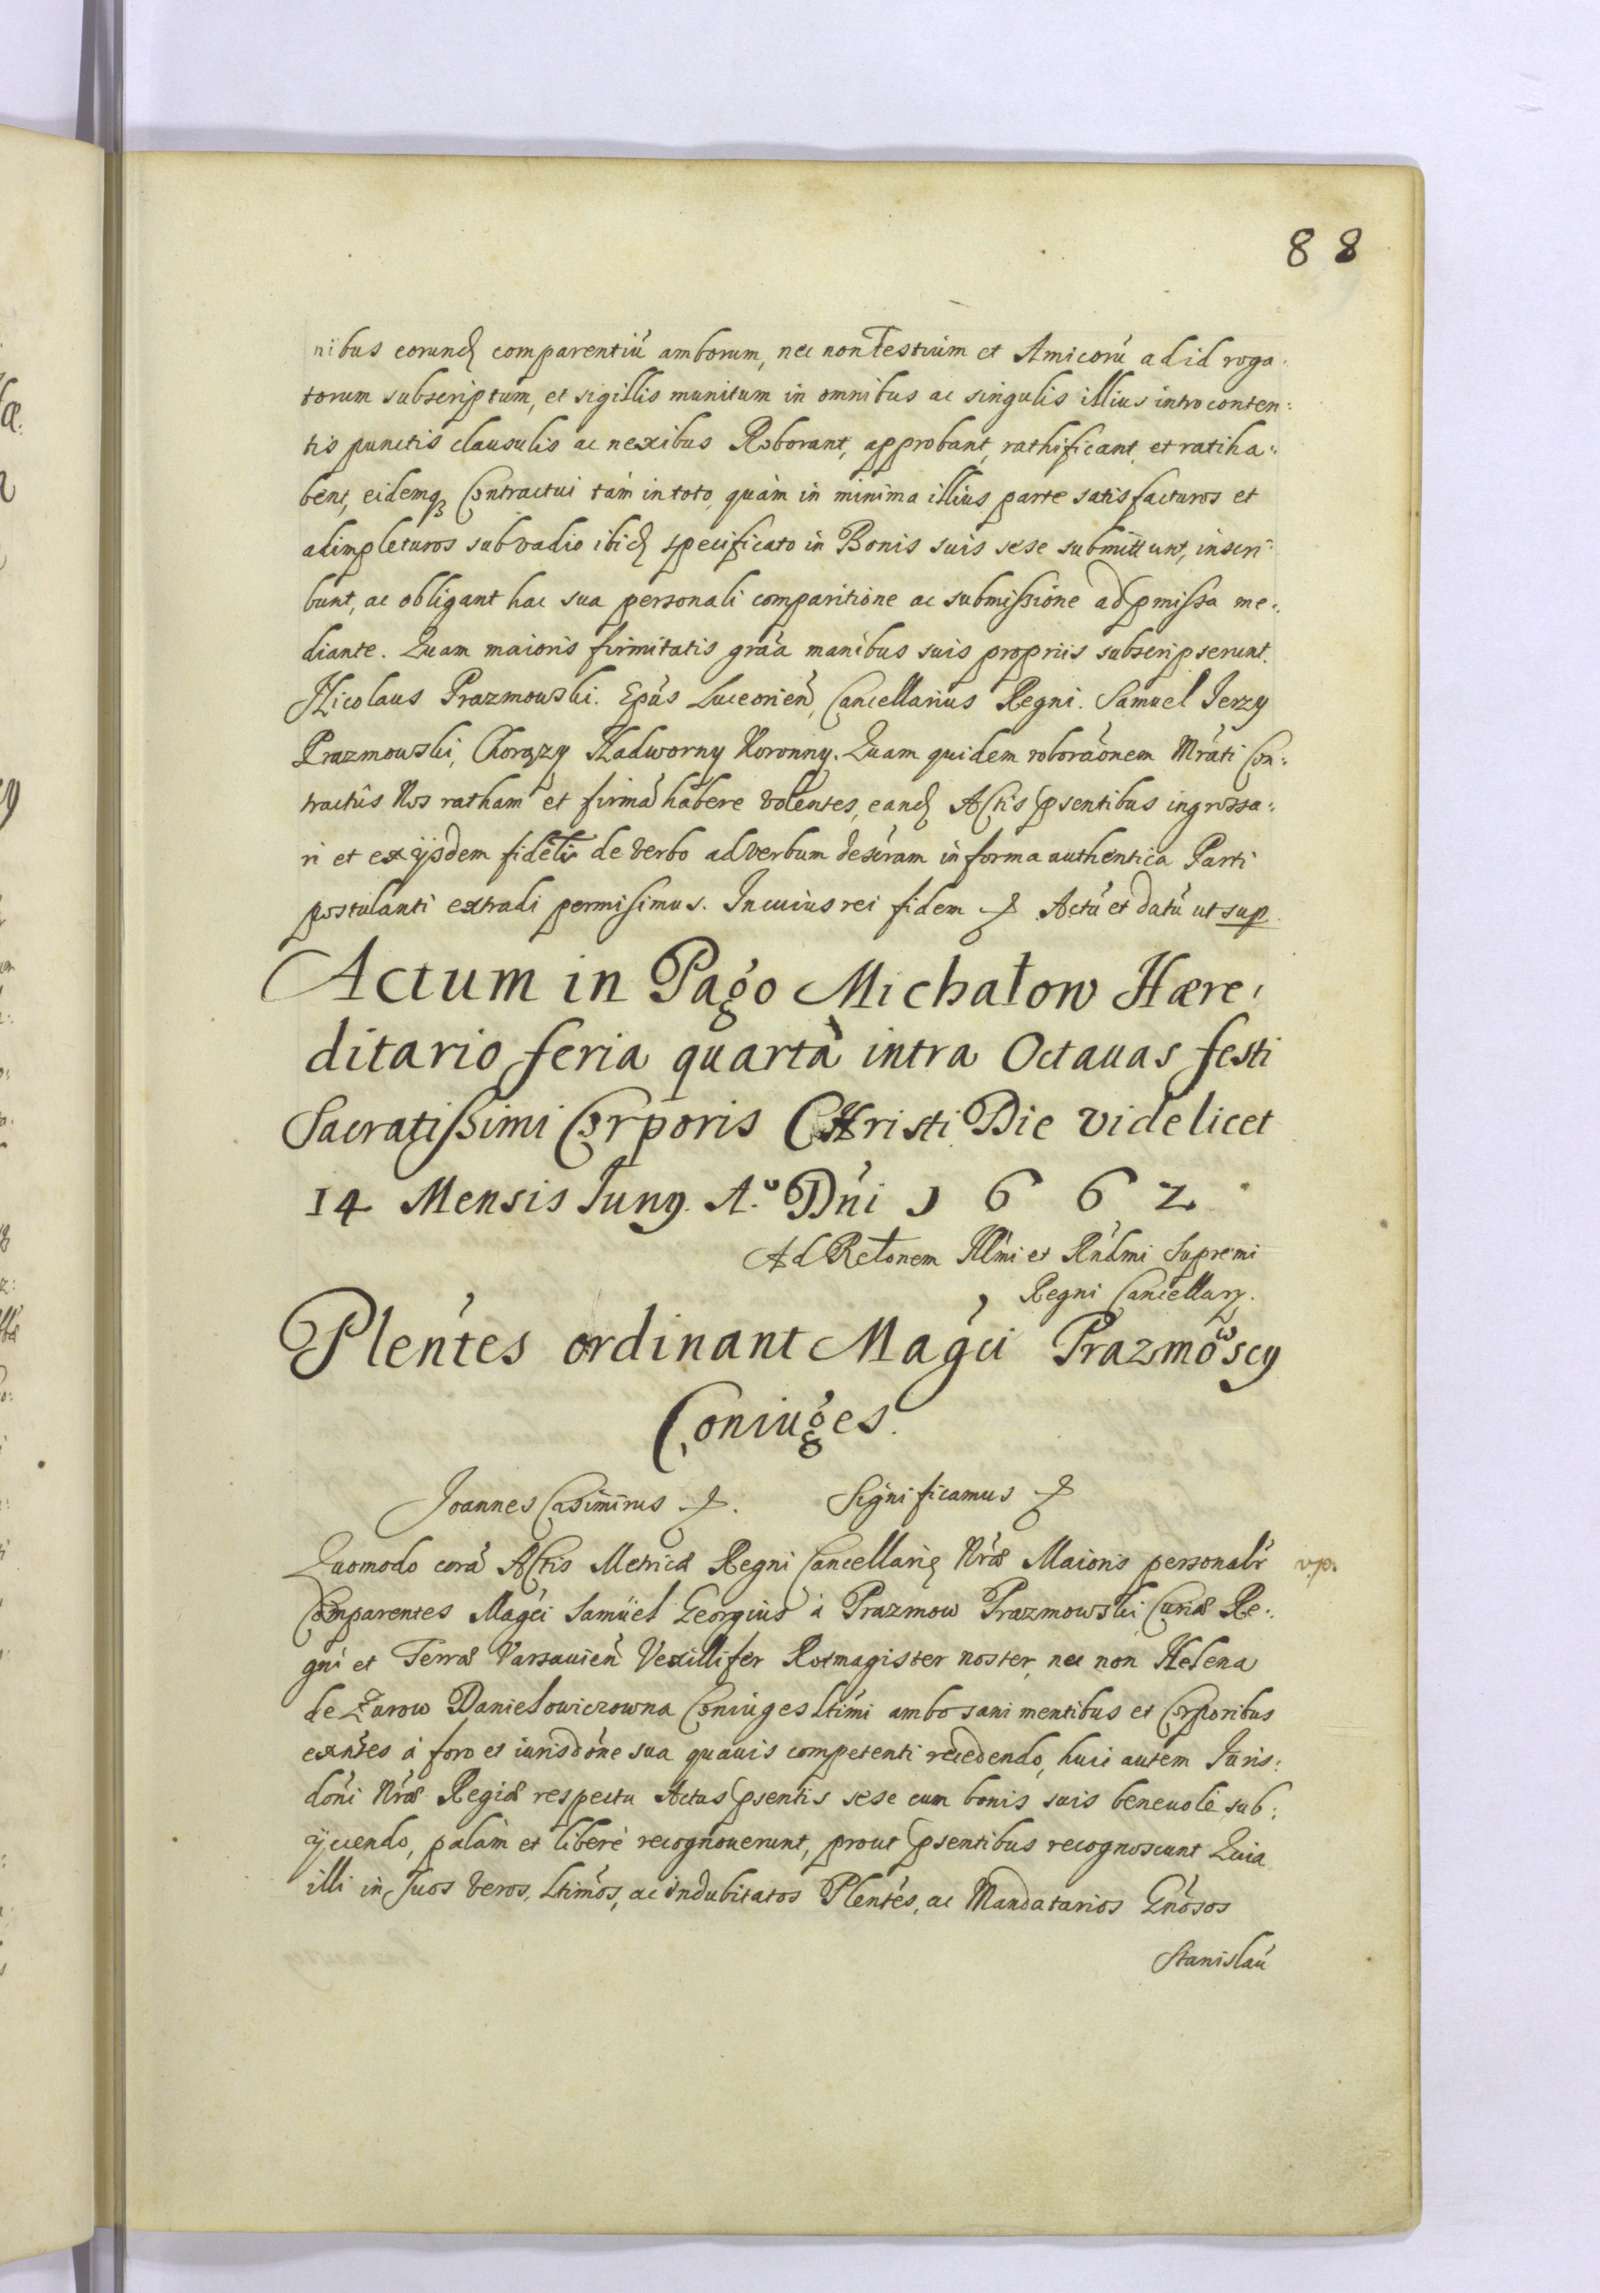 88
nibus eorund comparentiũ amborum, nec non Testium et Amicorũ ad id roga:
torum subscriptum, et sigillis munitum in omnibus ac singulis illius intro conten:
tis punctis clausulis ac nexibus Roborant, approbant, rathificant, et ratiha:
bent, eidemq Contractui tàm in toto, quàm in minima illius parte satisfacturos et
adimpleturos sub vadio ibid specificato in Bonis suis sese submittunt, inscri:
bunt, ac obligant hac sua personali comparitione ac submißione ad pmißa me:
diante. Quam maioris firmitatis grãa manibus suis propriis subscripserunt.
Nicolaus Prazmowski. Epũs Luceorieñ, Cancellarius Regni. Samuel Jerzy
Prazmowski, Chorązy Nadworny Koronny. Quam quidem roborãonem Mrãti Con:
tractûs Nos ratham et firmã habere volentes, eand Actis psentibus ingrossa:
ri et ex ijsdem fidelr de verbo ad verbum descram in forma authentica Parti
postulanti extradi permisimus. In cuius rei fidem &. Actũ et datũ ut sup.
Actum in Pago Michałow Hære:
ditario feria quartà intra Octauas festi
Sacratißimi Corporis CHristi Die videlicet
14 Mensis Juny. A.º Dñi 1662.
Ad Relonem Illmi et Rndmi Supremi
Regni Cancellarÿ.
Pleñtes ordinant Magci Prazmowscy
Coniuges.
Joannes Casimirus &. Significamus &
Quomodo corã Actis Metricæ Regni Cancellarię Nræ Maioris personalr v.p.
Comparentes Magci Samüel Georgius à Prazmow Prazmowski Curiæ Re:
gni et Terræ Varsauieñ Vexillifer Rotmagister noster, nec non Helena
de Zurow Danielowiczowna Coniuges ltimi ambo sani mentibus et Corporibus
exñtes á foro et iurisdõne sua quauis competenti recedendo, huic autem Juris:
dõni Nræ Regiæ respectu Actus psentis sese cum bonis suis beneuolè sub:
ijciendo, palàm et liberè recognouerunt, prout psentibus recognoscunt Quia
illi in suos veros, ltimos, ac indubitatos Pleñtes, ac Mandatarios Gñosos
Stanislaũ